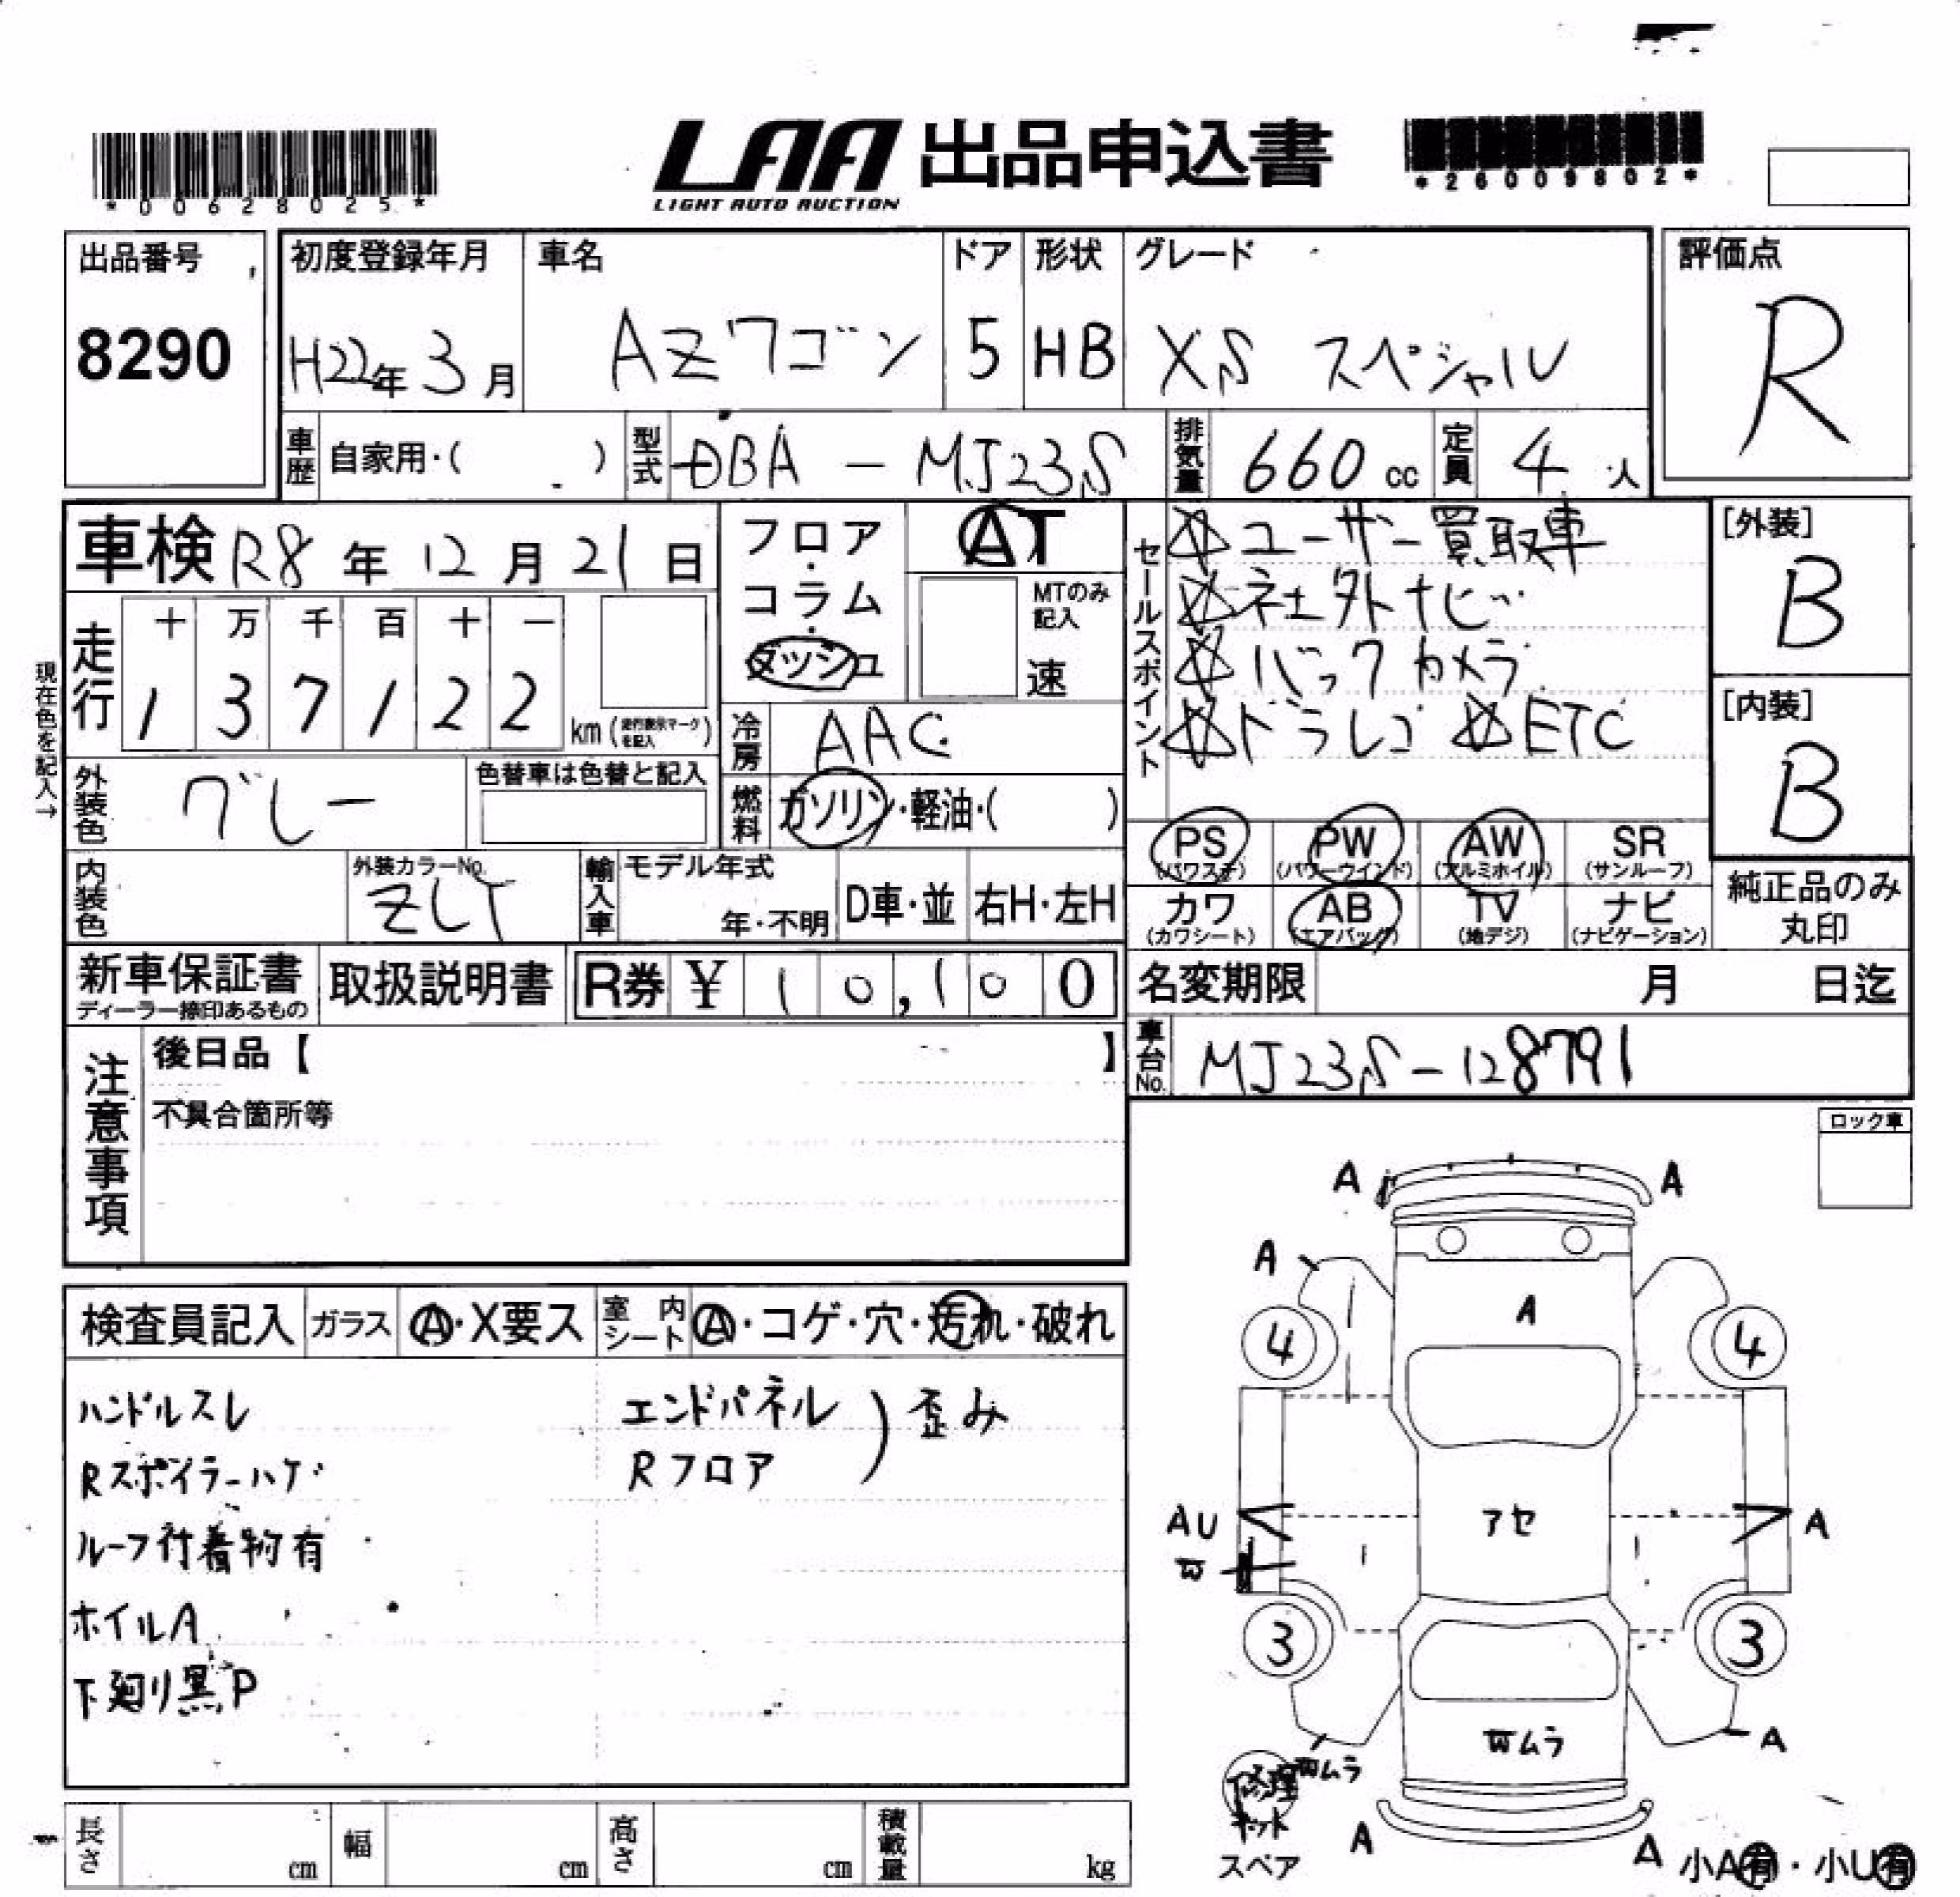 *00628025*
LAA 出品申込書
LIGHT AUTO AUCTION
*26009802*
出品番号
8290
初度登録年月
H22年3月
車名
AZワゴン
ドア
5
形状
HB
グレード
XS スペシャル
評価点
R
車歴
自家用・( )
型式
DBA - MJ23S
排気量
660 cc
定員
4 人
車検 R8年12月21日
走行
十 万 千 百 十 一
1 3 7 1 2 2
km (走行表示マークを記入)
現在色を記入→
フロア・コラム・ダッシュ
AT
MTのみ記入
速
冷房
AAC
燃料
ガソリン・軽油・( )
セールスポイント
☆ユーザー買取車
☆社外ナビ
☆バックカメラ
☆ドラレコ ☆ETC
[外装]
B
[内装]
B
外装色
グレー
色替車は色替と記入
内装色
外装カラーNo.
ZLT
輸入車
モデル年式
年・不明
D車・並
右H・左H
PS (パワステ)
PW (パワーウインド)
AW (アルミホイル)
SR (サンルーフ)
カワ (カワシート)
AB (エアバック)
TV (地デジ)
ナビ (ナビゲーション)
純正品のみ
丸印
新車保証書
ディーラー捺印あるもの
取扱説明書
R券 ¥ 10,100
名変期限 月 日迄
車台No.
MJ23S-128791
注意事項
後日品【 】
不具合箇所等
ロック車
検査員記入
ガラス
A・X要ス
室内シート
A・コゲ・穴・汚れ・破れ
ハンドルスレ
Rスポイラーハゲ
ルーフ付着物有
ホイルA
下廻り黒P
エンドパネル
Rフロア
) 歪み
A A
A
A
4 4
AU アセ A
W
3 3
Wムラ A
Wムラ
修理
キット
スペア
A A
小A有・小U有
長さ cm
幅 cm
高さ cm
積載量 kg